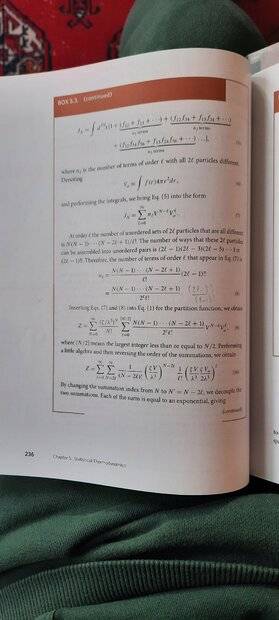 BOX 5.3. (continued)
J_N = ∫ d^{3N}x[1 + (f_{12} + f_{13} + ···) + (f_{12}f_{34} + f_{13}f_{24} + ···)
+ (f_{12}f_{34}f_{56} + f_{13}f_{24}f_{56} + ···) ...], (5)
where n_ℓ is the number of terms of order ℓ with all 2ℓ particles different.
Denoting
V_a ≡ ∫ f(r)4πr²dr, (6)
and performing the integrals, we bring Eq. (5) into the form
J_N = ∑_{ℓ=0}^{∞} n_ℓ V^{N−ℓ} V_a^ℓ. (7)
At order ℓ the number of unordered sets of 2ℓ particles that are all different
is N(N − 1) ··· (N − 2ℓ + 1)/(2ℓ)!. The number of ways that these 2ℓ particles
can be assembled into unordered pairs is (2ℓ − 1)(2ℓ − 3)(2ℓ − 5) ··· 1 ≡
(2ℓ − 1)!!. Therefore, the number of terms of order ℓ that appear in Eq. (7) is
n_ℓ = N(N − 1) ··· (N − 2ℓ + 1)/(2ℓ)! (2ℓ − 1)!!
= N(N − 1) ··· (N − 2ℓ + 1)/2^ℓ ℓ!. (8)
Inserting Eqs. (7) and (8) into Eq. (1) for the partition function, we obtain
Z = ∑_{N=0}^{∞} (ζ/λ³)^N/N! ∑_{ℓ=0}^{[N/2]} N(N − 1) ··· (N − 2ℓ + 1)/2^ℓ ℓ! V^{N−ℓ} V_a^ℓ, (9)
where [N/2] means the largest integer less than or equal to N/2. Performing
a little algebra and then reversing the order of the summations, we obtain
Z = ∑_{ℓ=0}^{∞} ∑_{N=2ℓ}^{∞} 1/(N − 2ℓ)! (ζV/λ³)^{N−2ℓ} 1/ℓ! (ζV/λ³ ζV_a/2λ³)^ℓ. (10)
By changing the summation index from N to N′ = N − 2ℓ, we decouple the
two summations. Each of the sums is equal to an exponential, giving
(continued)
236 Chapter 5. Statistical Thermodynamics